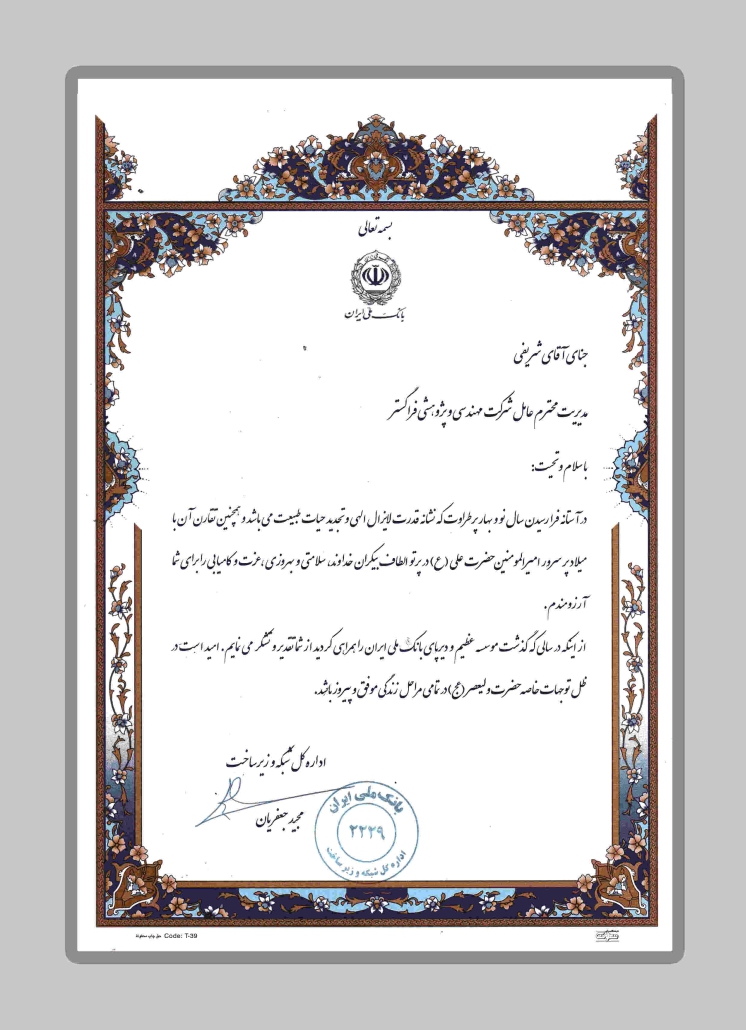 بسمه تعالی
بانک ملی ایران
جنای آقای شریفی
مدیریت محترم عامل شرکت مهندسی و پژوهشی فراگستر
باسلام و تحیت:
در آستانه فرارسیدن سال نو و بهار پرطراوت که نشانه قدرت لایزال الهی و تجدید حیات طبیعت می باشد و همچنین تقارن آن با
میلاد پر سرور امیرالمومنین حضرت علی (ع) در پرتو الطاف بیکران خداوند، سلامتی و بهروزی ،عزت و کامیابی را برای شما
آرزومندم.
از اینکه در سالی که گذشت موسسه عظیم و دیرپای بانک ملی ایران را همراهی کردید از شما تقدیر و تشکر می نمایم. امید است در
ظل توجهات خاصه حضرت ولیعصر (عج) در تمامی مراحل زندگی موفق و پیروز باشید.
اداره کل شبکه و زیرساخت
مجید جعفریان
بانک ملی ایران
۲۲۲۹
اداره کل شبکه و زیرساخت
حق چاپ محفوظ Code: T-39